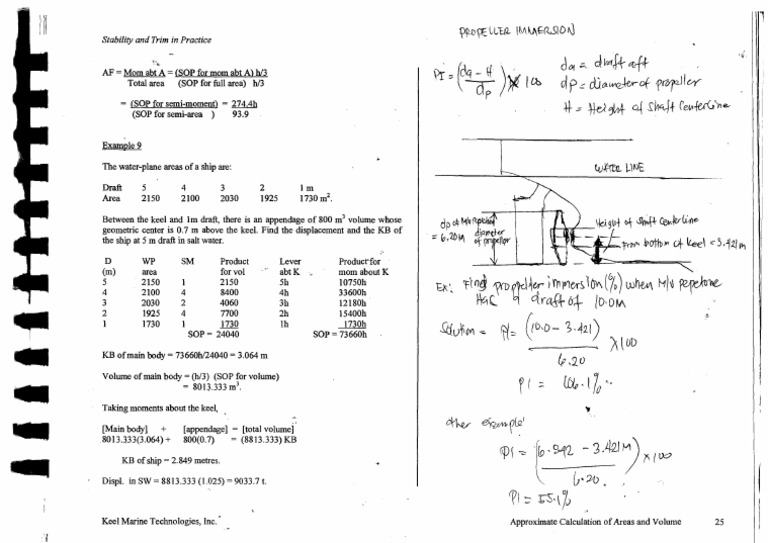 Stability and Trim in Practice
AF = Mom abt A = (SOP for mom abt A) h/3
Total area (SOP for full area) h/3
= (SOP for semi-moment) = 274.4h
(SOP for semi-area ) 93.9
Example 9
The water-plane areas of a ship are:
Draft 5 4 3 2 1 m
Area 2150 2100 2030 1925 1730 m².
Between the keel and 1m draft, there is an appendage of 800 m³ volume whose
geometric center is 0.7 m above the keel. Find the displacement and the KB of
the ship at 5 m draft in salt water.
D WP SM Product Lever Product for
(m) area for vol abt K mom about K
5 2150 1 2150 5h 10750h
4 2100 4 8400 4h 33600h
3 2030 2 4060 3h 12180h
2 1925 4 7700 2h 15400h
1 1730 1 1730 1h 1730h
SOP = 24040 SOP = 73660h
KB of main body = 73660h/24040 = 3.064 m
Volume of main body = (h/3) (SOP for volume)
= 8013.333 m³.
Taking moments about the keel,
[Main body] + [appendage] = [total volume]
8013.333(3.064) + 800(0.7) = (8813.333) KB
KB of ship = 2.849 metres.
Displ. in SW = 8813.333 (1.025) = 9033.7 t.
Keel Marine Technologies, Inc.
PROPELLER IMMERSION
PI = (da - H / dp) x 100
da = draft aft
dp = diameter of propeller
H = Height of Shaft Centerline
WATER LINE
dp of M/V
= 6.20M
diameter
of propeller
Height of Shaft Centerline
From bottom of keel = 3.421m
Ex: Find propeller immersion (%) when M/V
draft of 10.0M
Solution = PI = (10.0 - 3.421)
x100
6.20
PI = 106.1%
other example
PI = (6.842 - 3.421M) x100
6.20
PI = 55.1%
Approximate Calculation of Areas and Volume 25